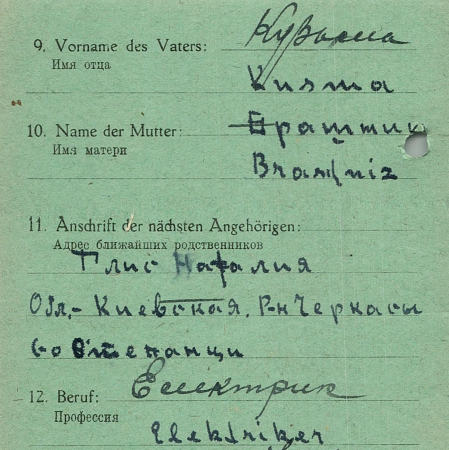 Кузьма
9. Vorname des Vaters:
Имя отца
Kusma
10. Name der Mutter: Браштик
Имя матери
11. Anschrift der nächsten Angehörigen:
Адрес ближайших родственников
Глис Наталия
Обл.- Киевская, Р-н Черкасы
12. Beruf: Електрик
Профессия
Elektriker